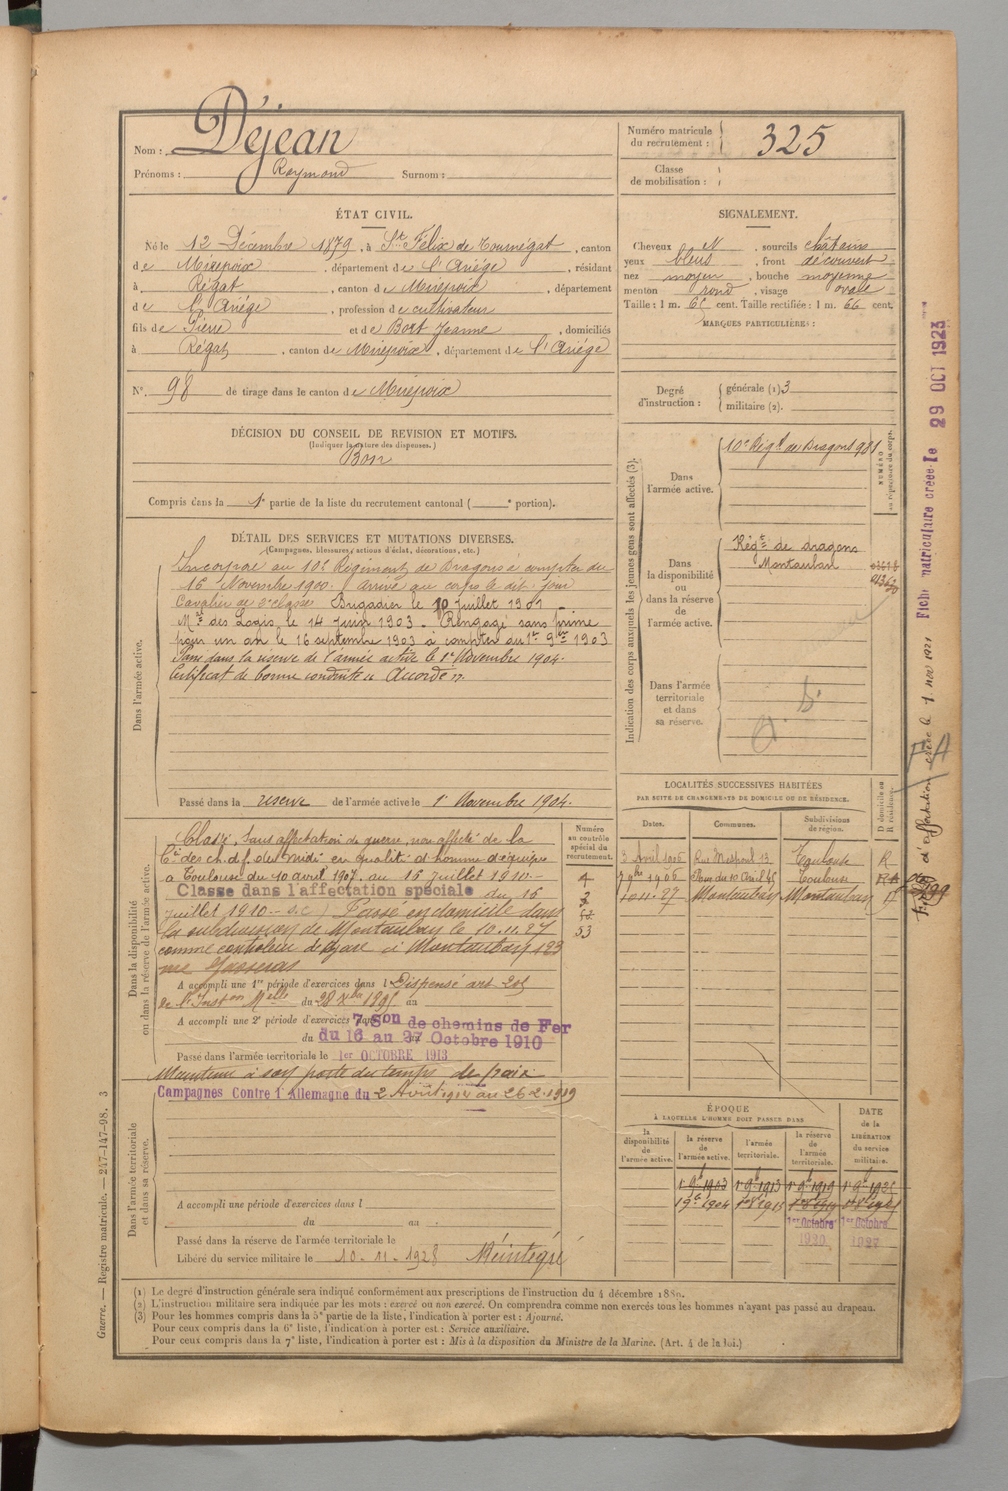 Nom : Déjean
Prénoms : Raymond Surnom :
Numéro matricule du recrutement : 325
Classe de mobilisation :
ÉTAT CIVIL.
Né le 12 Décembre 1879, à St Félix de Tournégat, canton
de Mirepoix, département de l'Ariége, résidant
à Régat, canton de Mirepoix, département
de l'Ariége, profession de cultivateur
fils de Pierre et de Bort Jeanne, domiciliés
à Régat, canton de Mirepoix, département de l'Ariége
N° 98 de tirage dans le canton de Mirepoix
SIGNALEMENT.
Cheveux N, sourcils châtains
yeux bleus, front découvert
nez moyen, bouche moyenne
menton rond, visage ovale
Taille : 1 m. 65 cent. Taille rectifiée : 1 m. 66 cent.
MARQUES PARTICULIÈRES :
Degré d'instruction : générale (1) 3
militaire (2).
DÉCISION DU CONSEIL DE REVISION ET MOTIFS.
(Indiquer la nature des dispenses.)
Bon
Compris dans la 1e partie de la liste du recrutement cantonal ( e portion).
DÉTAIL DES SERVICES ET MUTATIONS DIVERSES.
(Campagnes, blessures, actions d'éclat, décorations, etc.)
Dans l'armée active.
Incorporé au 10e Régiment de Dragons à compter du
16 Novembre 1900. arrivé au corps le dit jour
Cavalier de 2e classe Brigadier le 10 Juillet 1901
Mal des Logis, le 14 Juin 1903 - Rengagé sans prime
pour un an le 16 septembre 1903 à compter du 1er 9bre 1903
Passé dans la réserve de l'armée active le 1er Novembre 1904.
Certificat de bonne conduite "Accordé".
Passé dans la réserve de l'armée active le 1er Novembre 1904.
Indication des corps auxquels les jeunes gens sont affectés (3).
Dans l'armée active.
10e Régt de Dragons 981
NUMÉRO au répertoire du corps.
Dans la disponibilité ou dans la réserve de l'armée active.
Régt de dragons
Montauban
Dans l'armée territoriale et dans sa réserve.
Fiche matriculaire créée le 29 OCT 1923
Dans la disponibilité ou dans la réserve de l'armée active.
Classé, Sans affectation de guerre, non affecté de la
Cie des ch. d. f. du Midi en qualité d'homme d'équipe
à Toulouse du 10 avril 1907 au 16 juillet 1910
Classé dans l'affectation spéciale du 16
juillet 1910 Passé en domicile dans
la subdivision de Montauban le 10.11.27
comme controleur de gare à Montauban 123
rue
Numéro au contrôle spécial du recrutement.
53
A accompli une 1re période d'exercices dans l Dispensé art
de l'Inston Melle du 28 Xbre 1895 au
A accompli une 2e période d'exercices dans 7. Son de chemins de Fer
du 16 au 27 Octobre 1910
Passé dans l'armée territoriale le 1er OCTOBRE 1913
Maintenu à son poste du temps de paix
LOCALITÉS SUCCESSIVES HABITÉES
PAR SUITE DE CHANGEMENTS DE DOMICILE OU DE RÉSIDENCE.
Dates. Communes. Subdivisions de région. D domicile ou R résidence.
3 Avril 1906 Toulouse R
Toulouse
10.11.27 Montauban Montauban
Dans l'armée territoriale et dans sa réserve.
Campagnes Contre l'Allemagne du 2 Août 1914 au 26.2.1919
A accompli une période d'exercices dans l
du au
Passé dans la réserve de l'armée territoriale le
Libéré du service militaire le 10-11-1928 Réintégré
ÉPOQUE
À LAQUELLE L'HOMME DOIT PASSER DANS
la disponibilité de l'armée active. la réserve de l'armée active. l'armée territoriale. la réserve de l'armée territoriale. DATE de la LIBÉRATION du service militaire.
1er Octobre 1er Octobre
(1) Le degré d'instruction générale sera indiqué conformément aux prescriptions de l'instruction du 4 décembre 1889.
(2) L'instruction militaire sera indiquée par les mots : exercé ou non exercé. On comprendra comme non exercés tous les hommes n'ayant pas passé au drapeau.
(3) Pour les hommes compris dans la 5e partie de la liste, l'indication à porter est : Ajourné.
Pour ceux compris dans la 6e liste, l'indication à porter est : Service auxiliaire.
Pour ceux compris dans la 7e liste, l'indication à porter est : Mis à la disposition du Ministre de la Marine. (Art. 4 de la loi.)
Guerre. — Registre matricule. — 247-147-98. 3